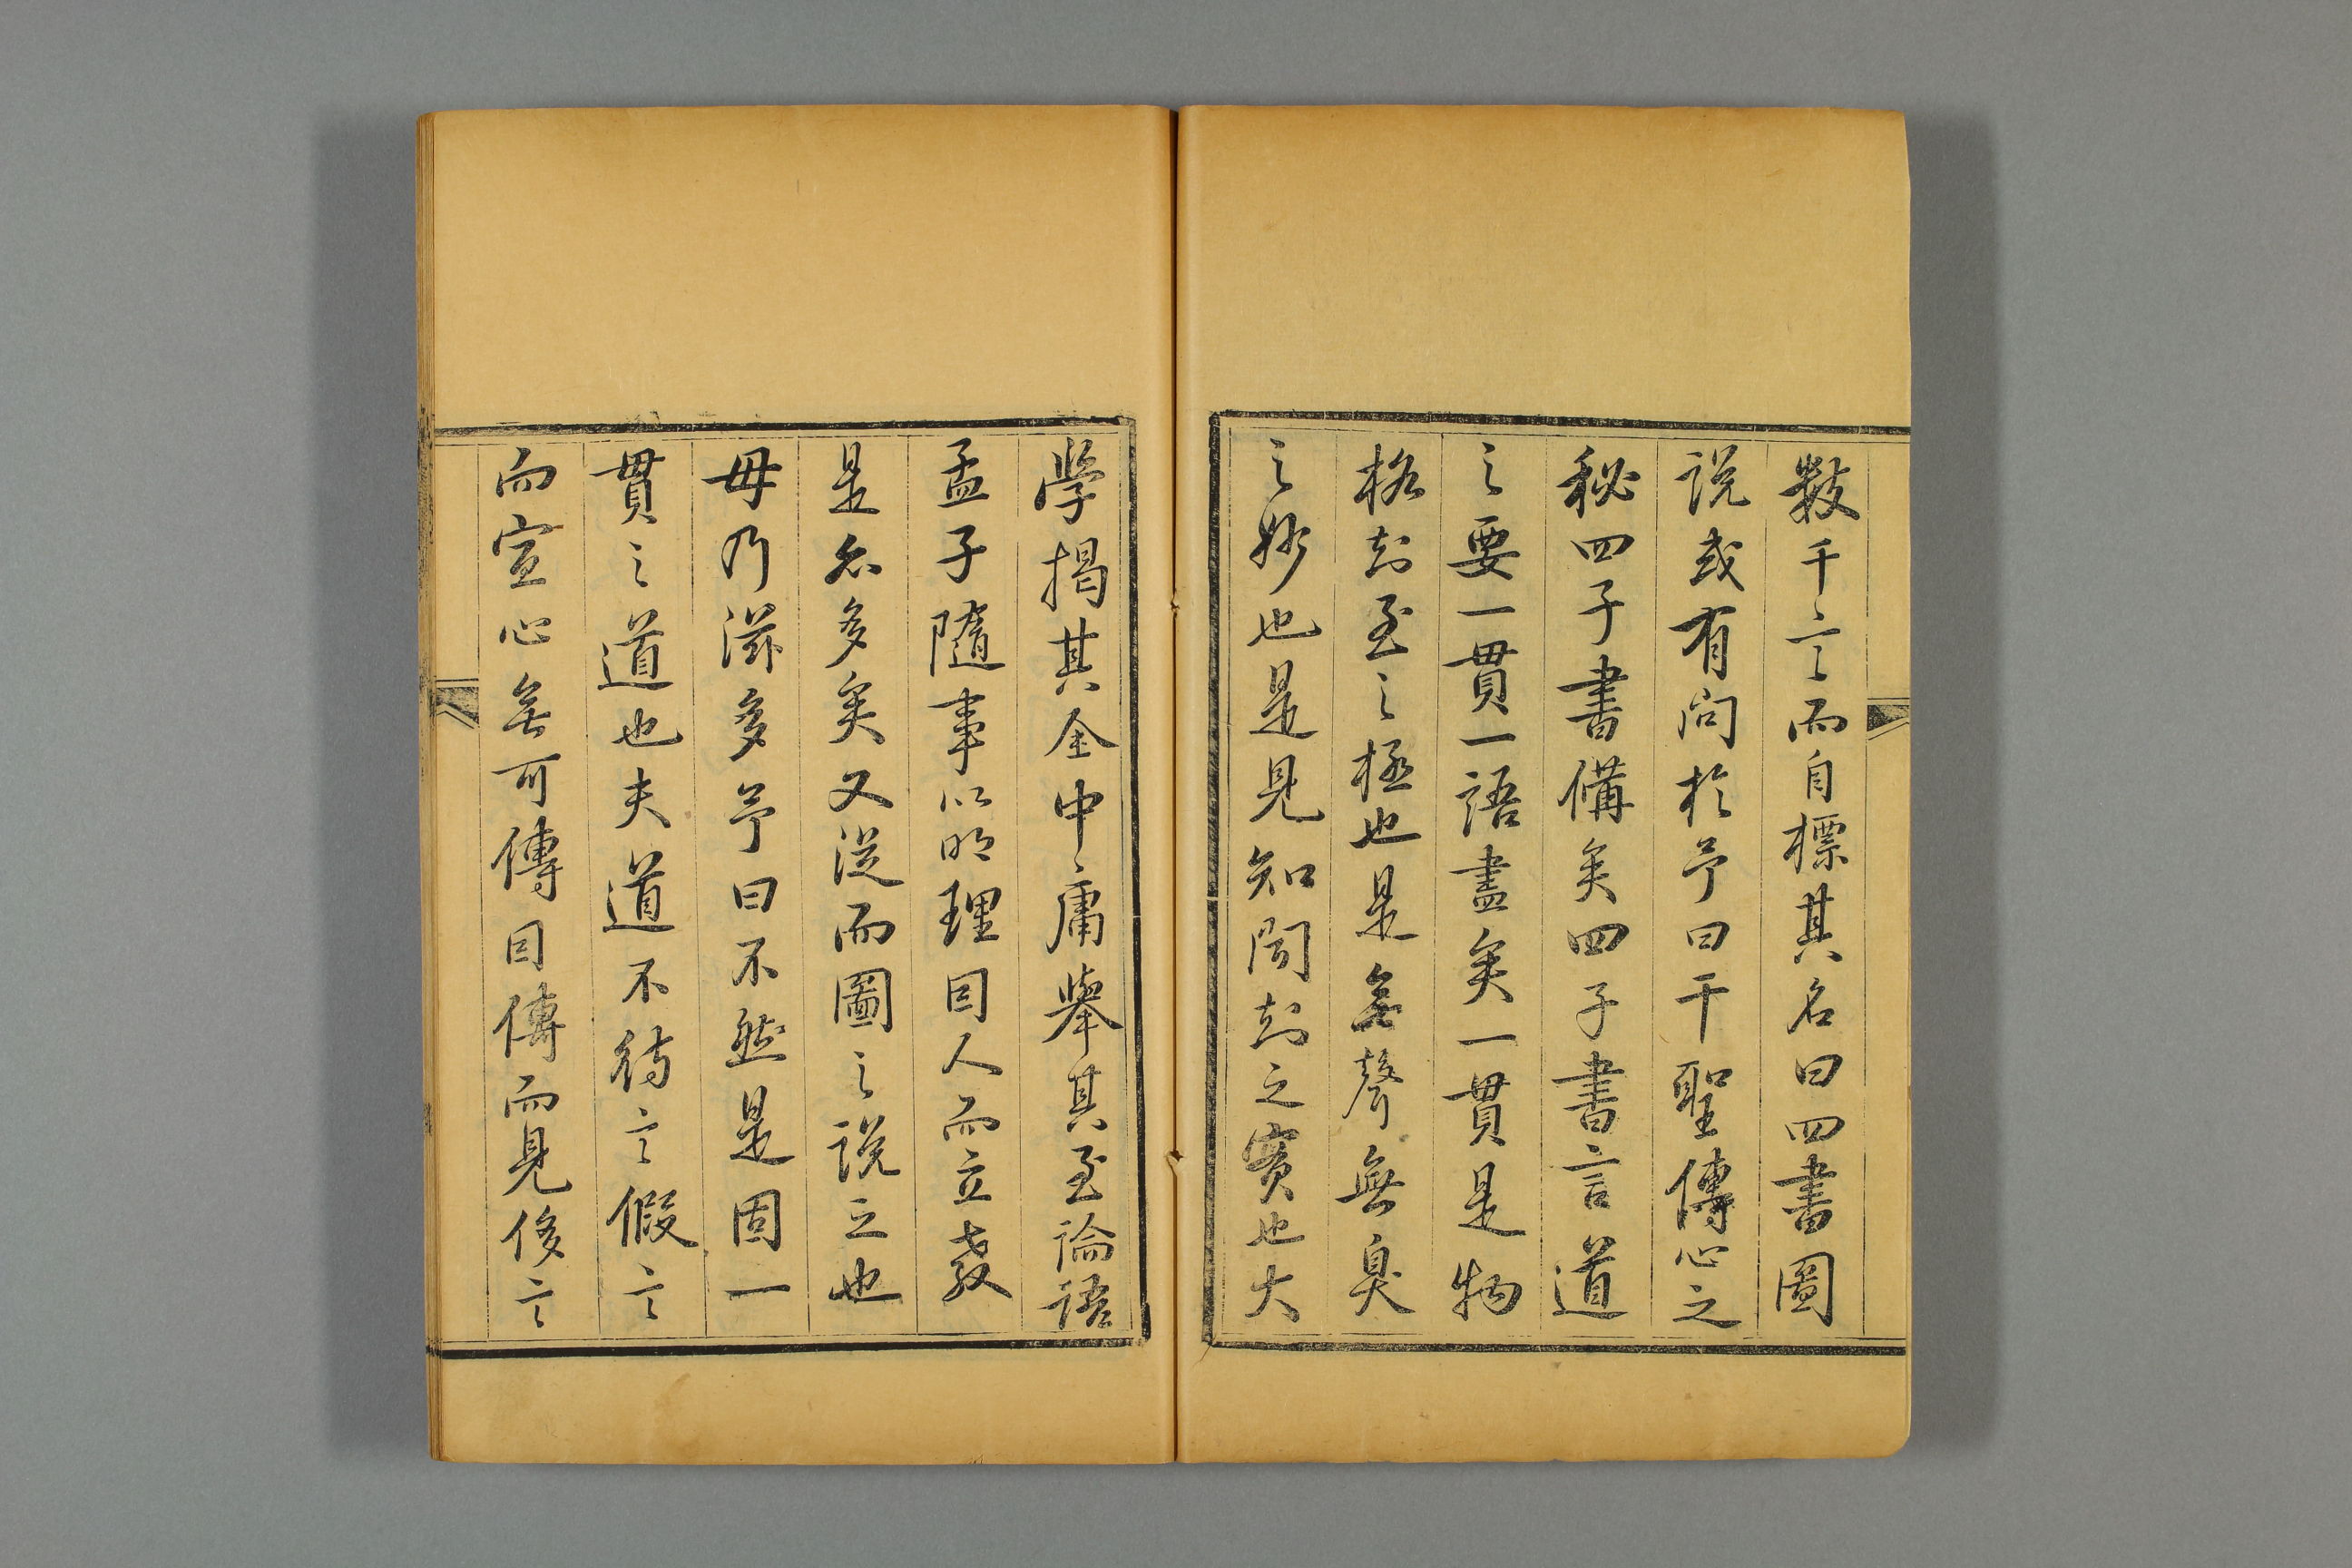 數千言而自標其名曰四書圖
說或有問於予曰千聖傳心之
秘四子書備矣四子書言道
之要一貫一語盡矣一貫是物
格知至之極也是無聲無臭
之妙也是見知聞知之實也大
學揭其全中庸舉其至論語
孟子隨事以明理因人而立教
是亦多矣又從而圖之說之也
毋乃滋多予曰不然是固一
貫之道也夫道不待言假言
而宣心無可傳因傳而見後之